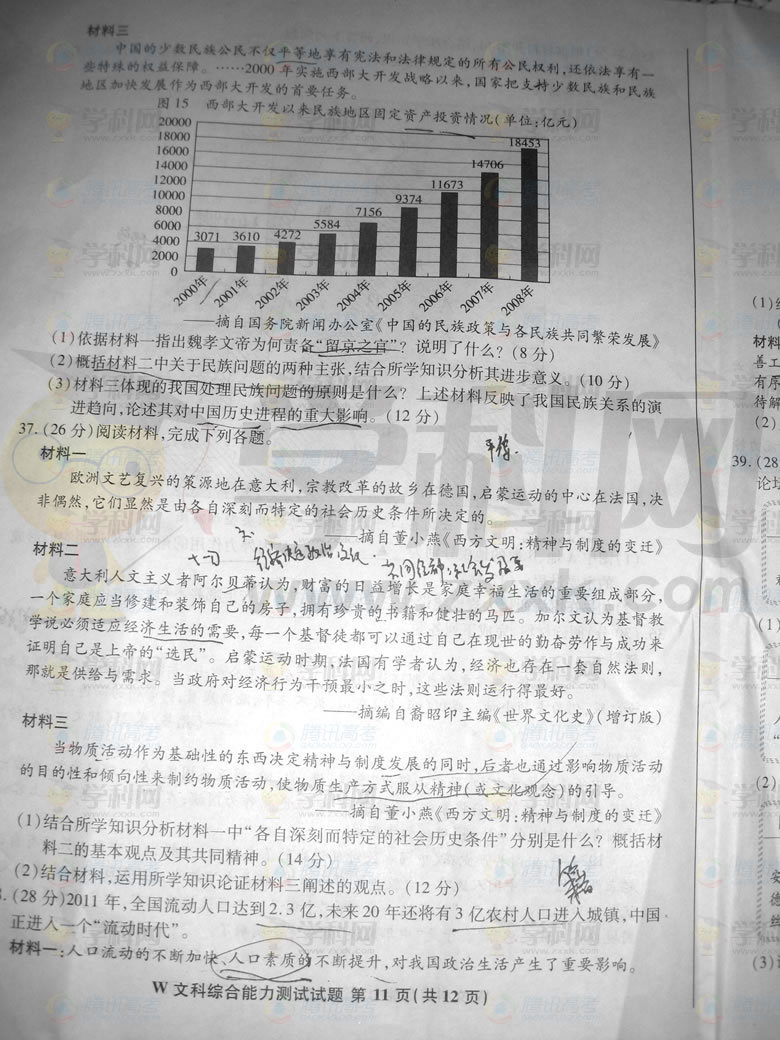 材料三
中国的少数民族公民不仅平等地享有宪法和法律规定的所有公民权利,还依法享有一
些特殊的权益保障。……2000 年实施西部大开发战略以来,国家把支持少数民族和民族
地区加快发展作为西部大开发的首要任务。
图 15 西部大开发以来民族地区固定资产投资情况(单位:亿元)
20000
18000
16000
14000
12000
10000
8000
6000
4000
2000
0
3071 3610 4272 5584 7156 9374 11673 14706 18453
2000年 2001年 2002年 2003年 2004年 2005年 2006年 2007年 2008年
——摘自国务院新闻办公室《中国的民族政策与各民族共同繁荣发展》
(1)依据材料一指出魏孝文帝为何责备“留京之官”? 说明了什么? (8 分)
(2)概括材料二中关于民族问题的两种主张,结合所学知识分析其进步意义。(10 分)
(3)材料三体现的我国处理民族问题的原则是什么? 上述材料反映了我国民族关系的演
进趋向,论述其对中国历史进程的重大影响。(12 分)
37.(26 分)阅读材料,完成下列各题。
材料一
欧洲文艺复兴的策源地在意大利,宗教改革的故乡在德国,启蒙运动的中心在法国,决
非偶然,它们显然是由各自深刻而特定的社会历史条件所决定的。
——摘自董小燕《西方文明:精神与制度的变迁》
材料二
意大利人文主义者阿尔贝蒂认为,财富的日益增长是家庭幸福生活的重要组成部分,
一个家庭应当修建和装饰自己的房子,拥有珍贵的书籍和健壮的马匹。加尔文认为基督教
学说必须适应经济生活的需要,每一个基督徒都可以通过自己在现世的勤奋劳作与成功来
证明自己是上帝的“选民”。启蒙运动时期,法国有学者认为,经济也存在一套自然法则,
那就是供给与需求。当政府对经济行为干预最小之时,这些法则运行得最好。
——摘编自裔昭印主编《世界文化史》(增订版)
材料三
当物质活动作为基础性的东西决定精神与制度发展的同时,后者也通过影响物质活动
的目的性和倾向性来制约物质活动,使物质生产方式服从精神(或文化观念)的引导。
——摘自董小燕《西方文明:精神与制度的变迁》
(1)结合所学知识分析材料一中“各自深刻而特定的社会历史条件”分别是什么? 概括材
料二的基本观点及其共同精神。(14 分)
(2)结合材料,运用所学知识论证材料三阐述的观点。(12 分)
.(28 分)2011 年,全国流动人口达到 2.3 亿,未来 20 年还将有 3 亿农村人口进入城镇,中国
正进入一个“流动时代”。
材料一:人口流动的不断加快、人口素质的不断提升,对我国政治生活产生了重要影响。
W 文科综合能力测试试题 第 11 页(共 12 页)
材料
善工
有序
待解
(2)
39.(28
论坛
(1)
(2)
(3)
学科网
www.zxxk.com
腾讯高考